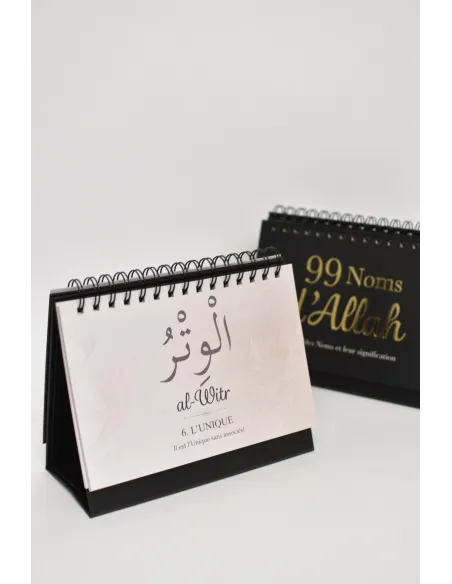 الْوِتْرُ
al-Witr
6. L'UNIQUE
Il est l'Unique sans associé
99 Noms
d'Allah
des Noms et leur signification